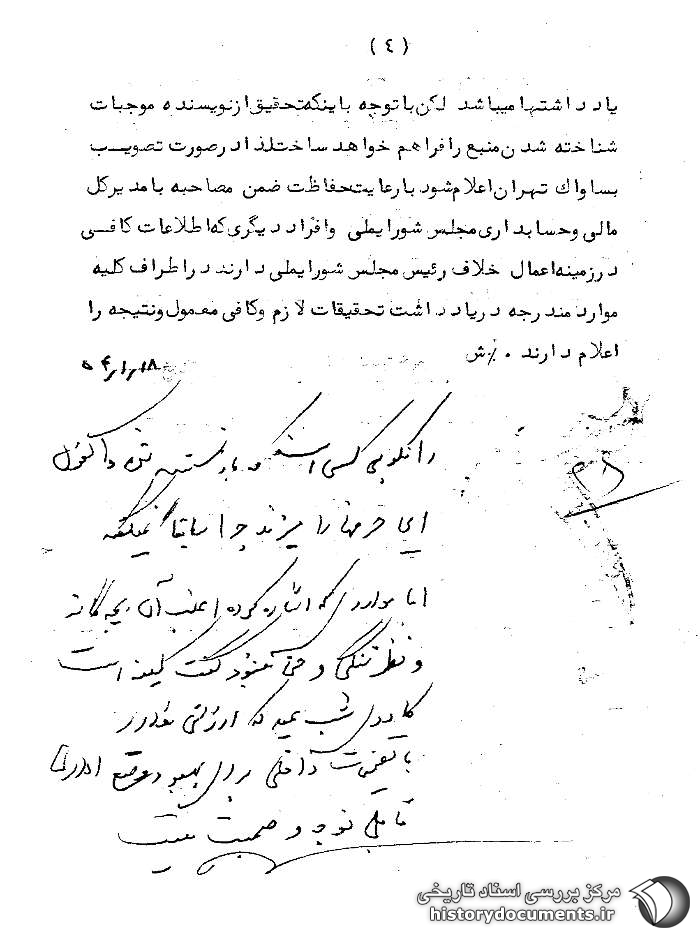 ( ٤ )
یادداشتها میباشد لکن با توجه باینکه تحقیق از نویسنده موجبات
شناخته شدن منبع را فراهم خواهد ساخت لذا در صورت تصویب
بساواك تهران اعلام شود با رعایت حفاظت ضمن مصاحبه با مدیرکل
مالی و حسابداری مجلس شورایملی و افراد دیگری که اطلاعات کافی
در زمینه اعمال خلاف رئیس مجلس شورایملی دارند در اطراف کلیه
موارد مندرجه در یادداشت تحقیقات لازم و کافی معمول و نتیجه را
اعلام دارند ٠ ٪ ش
کسی است و بازنشسته شده و اکنون
این حرفها را میزند چرا سابقا نمیگفته
اما مواردی که اشاره کرده اغلب آن بچه‌گانه
و نظر تنگی و حتی میشود گفت کینه است
قابل توجه و صحبت نیست
مرکز بررسی اسناد تاریخی
historydocuments.ir